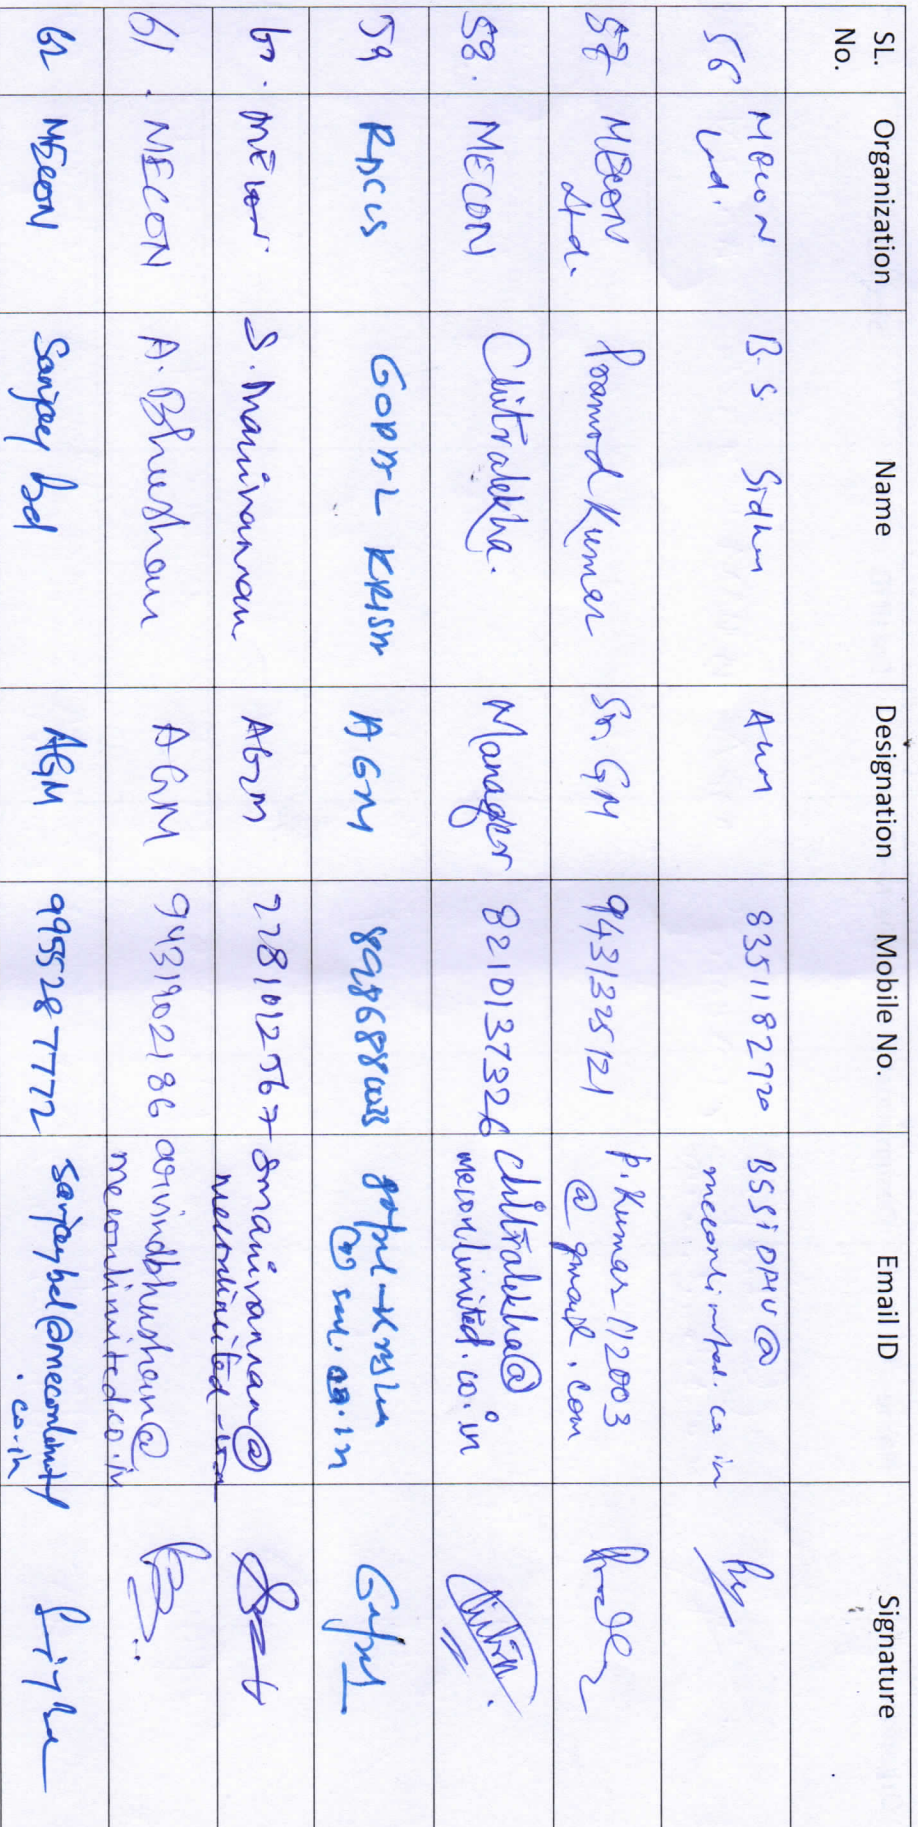 SL. No. Organization Name Designation Mobile No. Email ID Signature
56 MECON Ltd. B. S Sidhu AGM 8351182720 BSSIDHU@
meconlimited.co.in
57 MECON Ltd. Pramod Kumar Sr. GM 9431325121 p.kumar112003
@gmail.com
58. MECON Chitralekha. Manager 8210137326 chitralekha@
meconlimited.co.in
59 RDCIS GOPAL KRISHNA AGM
60. MECON S. Manivannan AGM smanivannan@
61. MECON A. Bhushan AGM 9431902186 arvindbhushan@
meconlimited.co.in
62 MECON Sanjay AGM 9955287772 sanjaybel@meconlimited
.co.in